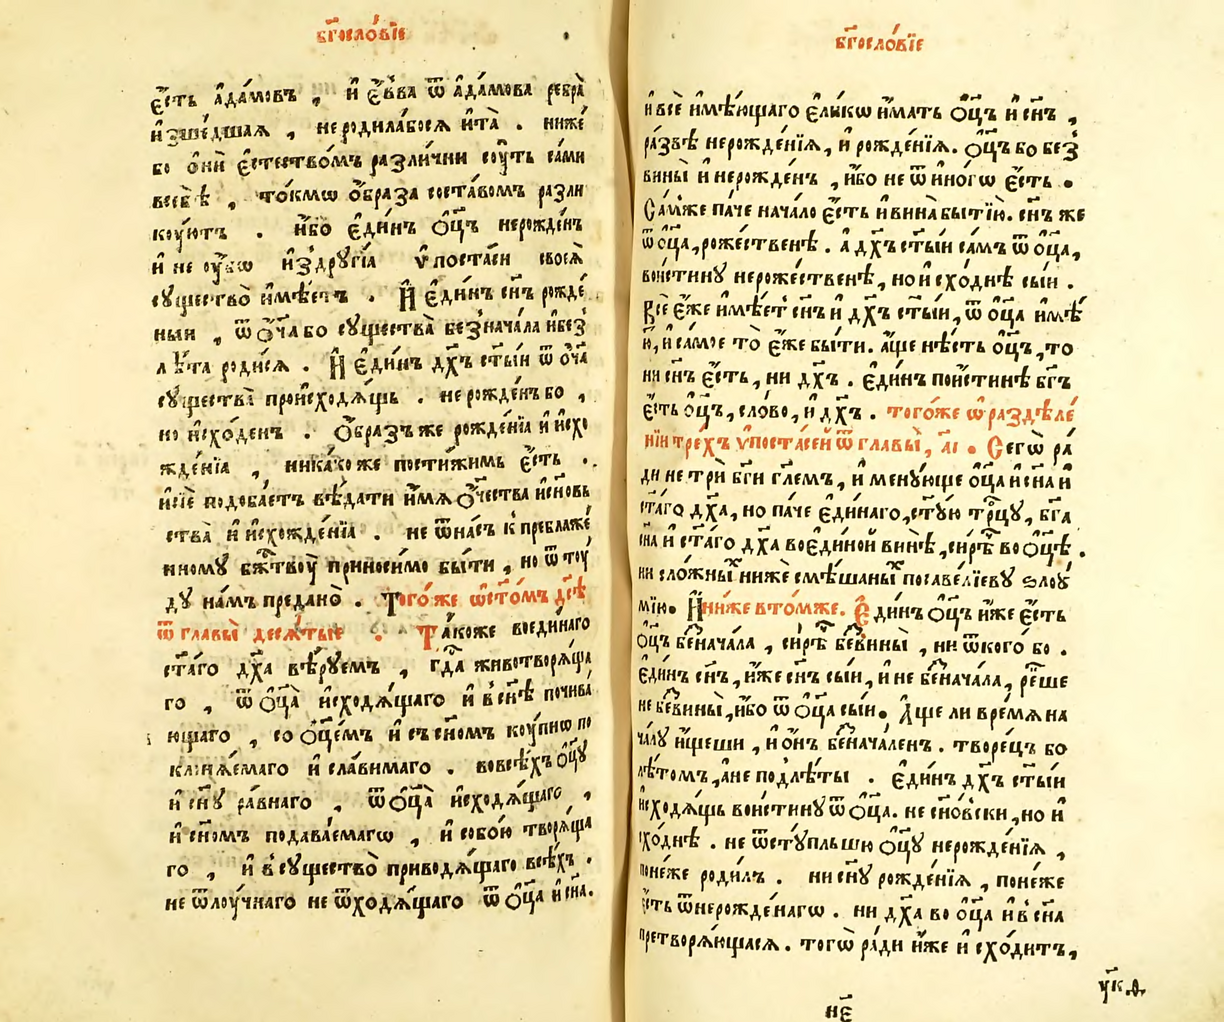 бг҃осло́вїе
є҆́сть а҆да́мовъ , и҆ є҆́вва ѿ а҆да́мова ребра̀
и҆зше́дшаѧ , не роди́ла бо сѧ и҆ та̀ . ниже́
бо ѻ҆ни̑ є҆стество́мъ разли́чни соу́ть са́ми
в себѣ̀ , то́кмѡ ѻ҆́браза соста́вомъ разли
коую́тъ . и҆́бо є҆ди́нъ ѻ҆ц҃ъ нерожде́нъ
и҆ не оу҆́бѡ и҆з̾ дрꙋгі́а ѵ҆поста́си своеѧ̀
сꙋщество̀ и҆мѣ́етъ . И҆ є҆ди́нъ сн҃ъ рожде́
ныи , ѿ ѻ҆́ч҃а бо сꙋщества̀ без̾ нача́ла и҆ без̾
лѣ́та роди́сѧ . И҆ є҆ди́нъ дх҃ъ ст҃ы́и ѿ ѻ҆́ч҃а
сꙋщества̀ происходѧ́щь . не рожде́нъ бо ,
но и҆схо́денъ . Ѻ҆́бразъ же рожде́нїа и҆ и҆схо
жде́нїа , ника́ко же пости́жимь є҆́сть .
и҆ сїѐ подоба́етъ вѣ́дати и҆́мѧ ѻ҆́ч҃ества и҆ сн҃овь
ства̀ и҆ и҆схожде́нїа . не ѿ на́съ к̾ преблаже́
нномꙋ бж҃твоу̀ приноси́мо бы́ти , но ѿ тоу́
дꙋ на́мъ предано̀ . Того́же ѡ҆ ст҃о́мъ дс҃ѣ
ѿ главы̀ десѧ́тые . Та́коже во єди́наго
ст҃а́го дх҃а вѣ́рꙋемъ , гд҃а животворѧ́ща
го , ѿ ѻ҆ц҃а̀ и҆сходѧ́щаго и҆ в̾ сн҃ѣ почива́
ющаго , со ѻ҆ц҃е́мъ и҆ съ сн҃омъ коу́пнѡ по
кланѧ́емаго и҆ сла́вимаго . во всѣ́хъ ѻ҆ц҃ꙋ̀
и҆ сн҃ꙋ ра́внаго , ѿ ѻ҆ц҃а̀ и҆сходѧ́щаго ,
и҆ сн҃омъ подава́емагѡ , и҆ собо́ю творѧ́ща
го , и҆ в̾ сꙋщество̀ приводѧ́щаго всѣ́хъ .
не ѿлоу́чнаго не ѿходѧ́щаго ѿ ѻ҆ц҃а и҆ сн҃а .
бг҃осло́вїе
и҆ всѐ и҆мѣ́ющаго є҆ли́кѡ и҆́мать ѻ҆ц҃ъ и҆ сн҃ъ ,
ра́звѣ нерожде́нїѧ , и҆ рожде́нїѧ . ѻ҆ц҃ъ бо без̾
вины̀ и҆ нерожде́нъ , и҆́бо не ѿ и҆но́гѡ є҆́сть .
Са́м же па́че нача́ло є҆́сть и҆ вина̀ бытїю̀ . сн҃ъ же
ѿ ѻ҆ц҃а , ро́жественѣ . а дх҃ъ ст҃ы́и са́мъ ѿ ѻ҆ц҃а ,
вои́стинꙋ не ро́жественѣ , но и҆схо́днѣ сы́и .
Всѐ є҆́же и҆мѣ́ет сн҃ъ и҆ дх҃ъ ст҃ы́и , ѿ ѻ҆ц҃а и҆мѣ́
й , и҆ са́мое то̀ є҆́же бы́ти . а҆́ще нѣ́сть ѻ҆ц҃ъ , то
ни сн҃ъ є҆́сть , ни дх҃ъ . є҆ди́нъ пои́стинѣ бг҃ъ
є҆́сть ѻ҆ц҃ъ , сло́во , и҆ дх҃ъ . того́же ѡ҆ раздѣле́
нїи тре́хъ ѵ҆поста́сей ѿ главы̀ , а҃і . Сегѡ̀ ра́
ди не трѝ бг҃и гл҃емъ , и҆менꙋ́юще ѻ҆ц҃а и҆ сн҃а и҆
ст҃а́го дх҃а , но па́че є҆ди́наго , ст҃ꙋ́ю трⷪ҇цꙋ , бг҃а
сн҃а и҆ ст҃а́го дх҃а во є҆ди́ной винѣ̀ , си́рѣⷱ҇ во ѻ҆ц҃ѣ .
ни сло́жныⷯ ниже́ смѣ́шаныⷯ по саве́лїевꙋ ѕлоу́
мїю . И҆ ни́же в то́мже . Є҆ди́нъ ѻ҆ц҃ъ и҆́же є҆́сть
ѻ҆ц҃ъ беⷥнача́ла , си́рѣⷱ҇ беⷥвины̀ , ни ѿ ко́го бо .
є҆ди́нъ сн҃ъ , и҆́же сн҃ъ сы́и , и҆ не беⷥнача́ла , ре́кше
не беⷥвины̀ , и҆́бо ѿ ѻ҆ц҃а сы́и . А҆́ще ли вре́мѧ на
ча́лꙋ и҆́щеши , и҆ ѻ҆́нъ беⷥнача́ленъ . творе́цъ бо
лѣ́томъ , а не под̾ лѣ́ты . є҆ди́нъ дх҃ъ ст҃ы́и
и҆сходѧ́щь вои́стинꙋ ѿ ѻ҆ц҃а . не сн҃о́вски , но и҆
схо́днѣ . не ѿстꙋ́пльшю ѻ҆ц҃ꙋ нерожде́нїѧ ,
поне́же роди́лъ . ни сн҃ꙋ рожде́нїѧ , поне́же
є҆́сть ѿ нерожде́нагѡ . ни дх҃а во ѻ҆ц҃а и҆ в̾ сн҃а
претворѧ́ющасѧ . тогѡ̀ ра́ди и҆́же и҆ схо́дитъ ,
н҃є